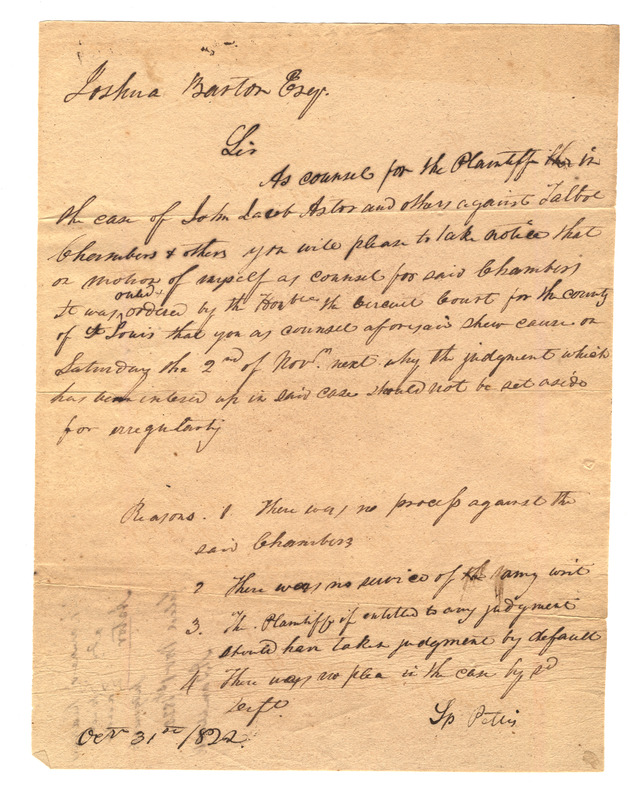 Joshua Barton Esqr.
Sir
As counsel for the Plaintiff in
the case of John Jacob Astor and others against Talbot
Chambers & others you will please to take notice that
on motion of myself as counsel for said Chambers
ruled &
It was ordered by the Honble the Circuit Court for the county
of St Louis that you as counsel aforesaid shew cause on
Saturday the 2nd of Novr next why the judgment which
has been entered up in said case should not be set aside
for irregularity
Reasons. 1 There was no process against the
said Chambers
2 There was no service of any writ
3. The Plaintiffs if entitled to any judgment
should have taken judgment by default
4 There was no plea in the case by sd
Deft.
Sp Pettis
Octr 31st 1822.